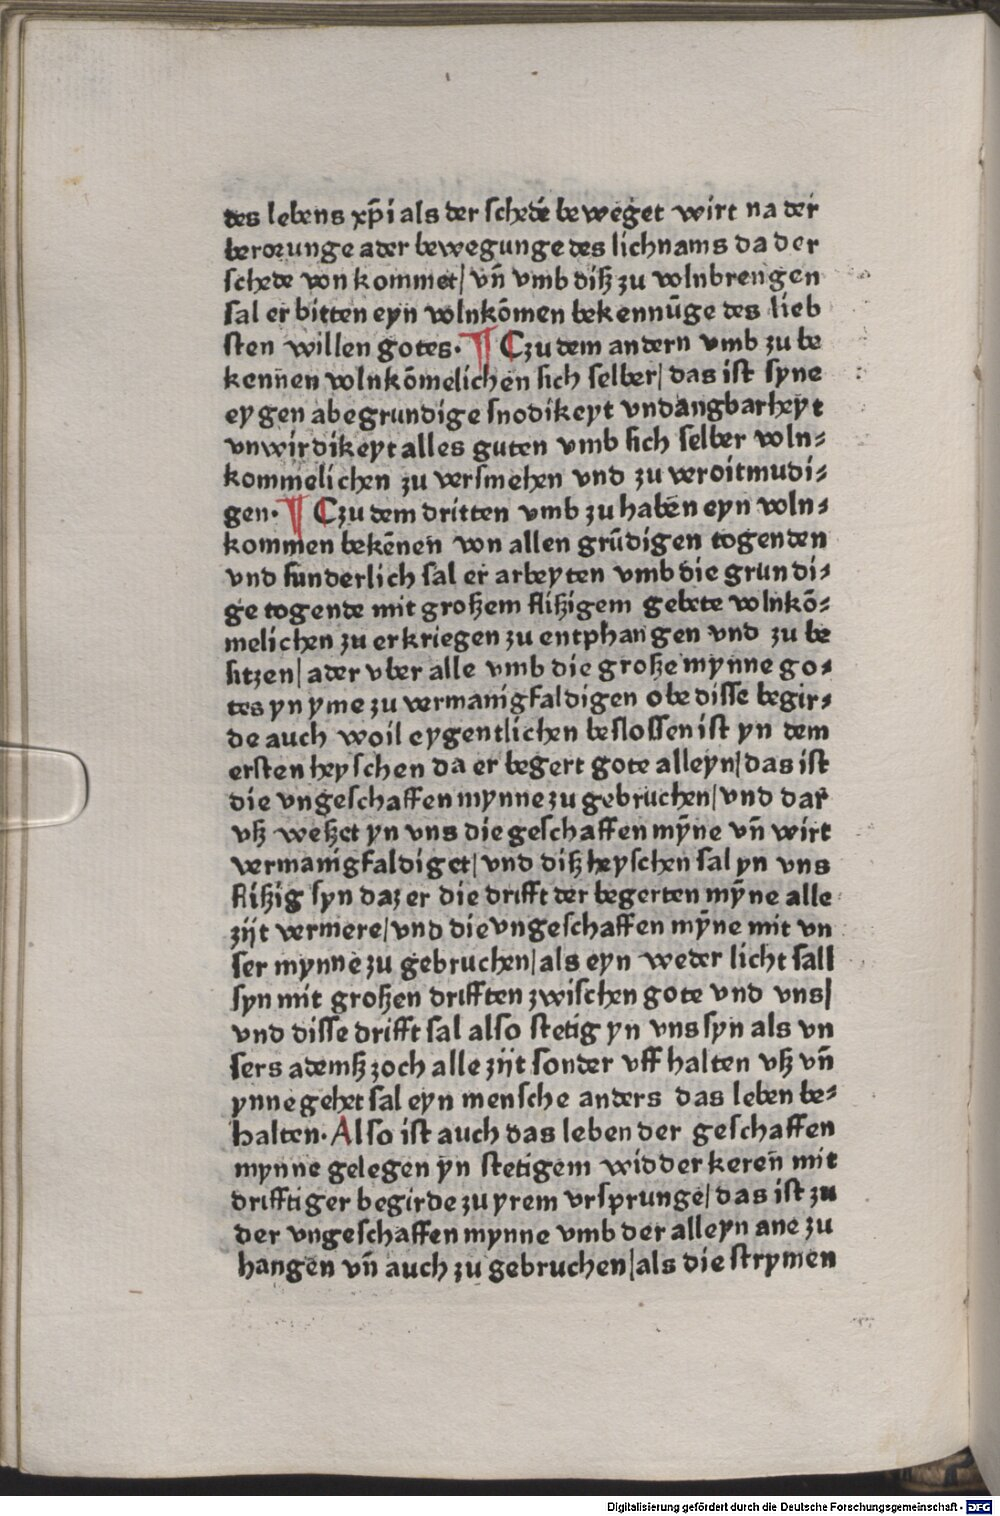 des lebens xp̄i als der schedē beweget wirt na der
berorunge ader bewegunge des lichnams da der
schede von kommet/ vn̄ vmb diſz zu volnbrengen
sal er bitten eyn volnkōmen bekennūge des lieb
ſten willen gotes. ¶ Czu dem andern vmb zu be
kennen volnkōmelichen ſich ſelber/ das iſt ſyne
eygen abegrundige ſnodikeyt vndangbarheyt
vnwirdikeyt alles guten vmb ſich ſelber voln⸗
kommelichen zu verſmehen vnd zu veroitmudi⸗
gen. ¶ Czu dem dritten vmb zu haben eyn voln⸗
kommen bekēnen von allen grūdigen togenden
vnd ſunderlich ſal er arbeyten vmb die grundi⸗
ge togende mit groſzem fliſzigem gebete volnkō⸗
melichen zu erkriegen zu entphangen vnd zu be
ſitzen/ ader vber alle vmb die groſze mynne go⸗
tes yn yme zu vermanigfaldigen obe diſſe begir⸗
de auch woil eygentlichen beſloſſen iſt yn dem
erſten heyſchen da er begert gote alleyn/ das iſt
die vngeſchaffen mynne zu gebruchen/ vnd dar
vſz weſzet yn vns die geſchaffen mȳne vn̄ wirt
vermanigfaldiget/ vnd diſz heyſchen ſal yn vns
fliſzig ſyn daz er die drifft der begerten mȳne alle
zijt vermere/ vnd die vngeſchaffen mȳne mit vn
ſer mynne zu gebruchen/ als eyn weder licht ſall
ſyn mit groſzen drifften zwiſchen gote vnd vns/
vnd diſſe drifft ſal alſo ſtetig yn vns ſyn als vn
ſers ademſz zoch alle zijt ſonder vff halten vſz vn̄
ynne gehet ſal eyn menſche anders das leben be⸗
halten. Alſo iſt auch das leben der geſchaffen
mynne gelegen yn ſtetigem widderkeren mit
drifftiger begirde zu yrem vrſprunge/ das iſt zu
der vngeſchaffen mynne vmb der alleyn ane zu
hangen vn̄ auch zu gebruchen/ als die ſtrymen
Digitalisierung gefördert durch die Deutsche Forschungsgemeinschaft - DFG